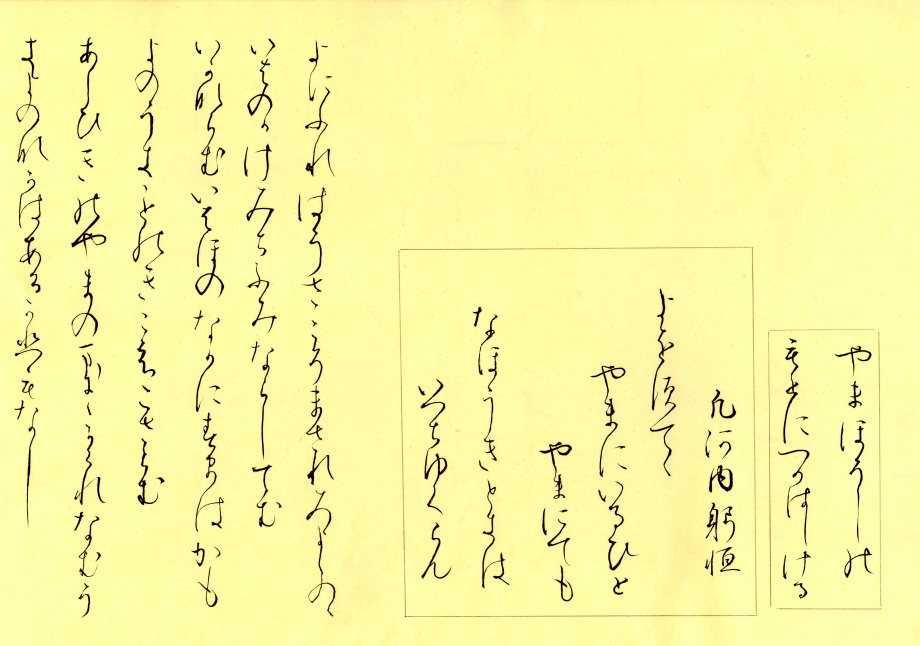 やまほうしの
もとにつかはしける
凡河内躬恒
よをすてて
やまにいるひと
やまにても
なほうきときは
いつちゆくらん
よにふれはうさこそまされみよしのの
いはのかけみちふみならしてむ
いかならむいはほのなかにすまはかも
よのうきことのきこえこさらむ
あしひきのやまのまにまにかくれなむう
きよのなかはあるかひもなし